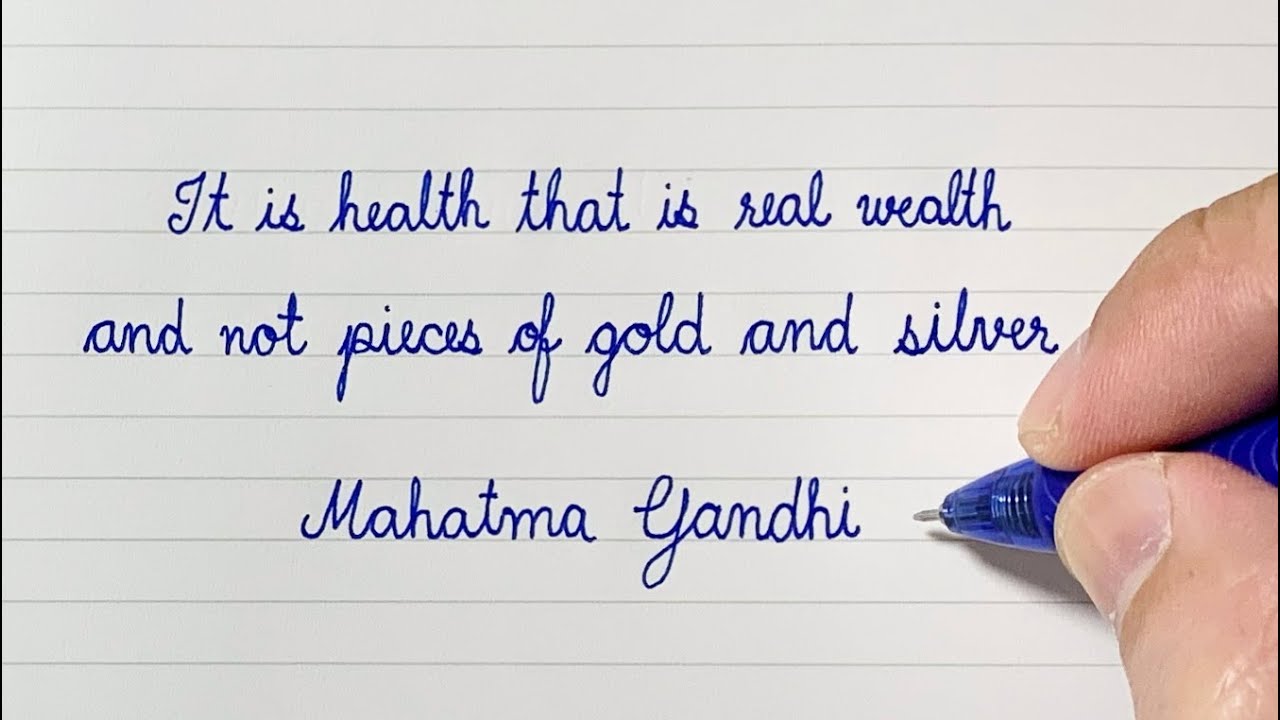 It is health that is real wealth
and not pieces of gold and silver
Mahatma Gandhi